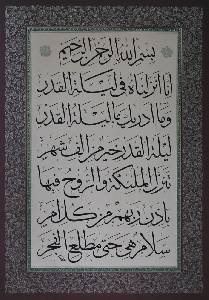 بسم الله الرحمن الرحيم
انا انزلناه في ليلة القدر
وما ادريك ما ليلة القدر
ليلة القدر خير من الف شهر
تنزل الملئكة والروح فيها
باذن ربهم من كل امر
سلام هي حتى مطلع الفجر